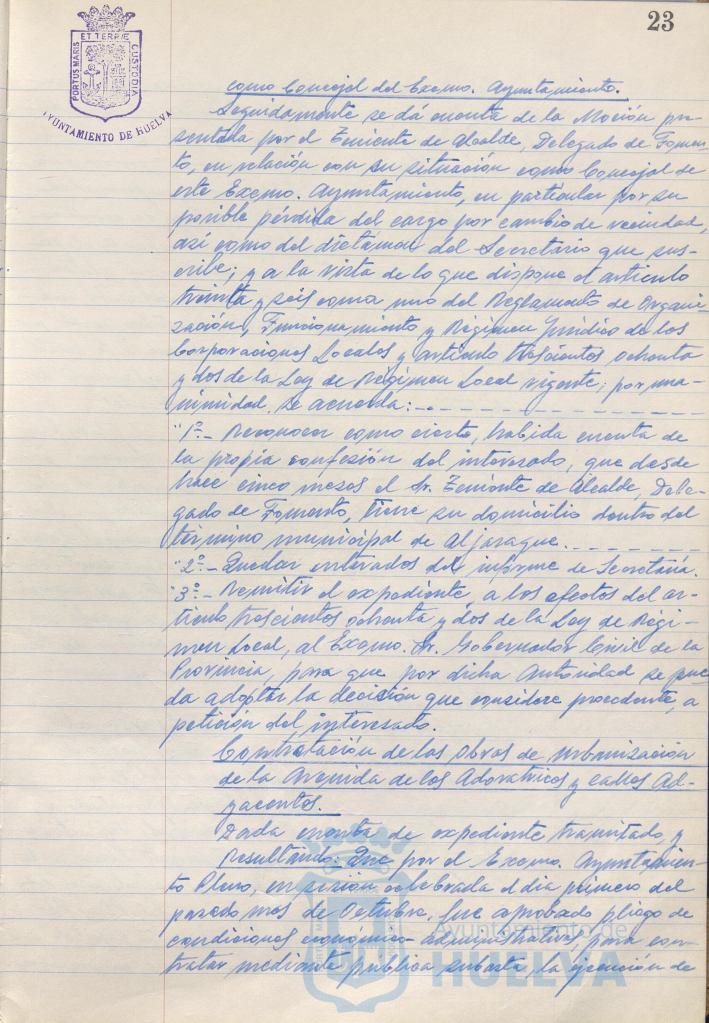 23
PORTUS MARIS ET TERRÆ CUSTODIA
AYUNTAMIENTO DE HUELVA
como Concejal del Excmo. Ayuntamiento.
Seguidamente se dá cuenta de la Moción pre-
sentada por el Teniente de Alcalde, Delegado de Fomen-
to, en relación con su situación como Concejal de
este Excmo. Ayuntamiento, en particular por su
posible pérdida del cargo por cambio de vecindad,
así como del dictámen del Secretario que sus-
cribe; y a la vista de lo que dispone el artículo
treinta y seis coma uno del Reglamento de Organi-
zación, Funcionamiento y Régimen Jurídico de las
Corporaciones Locales y artículo trescientos ochenta
y dos de la Ley de Régimen Local vigente; por una-
nimidad, se acuerda:
"1º.- Reconocer como cierto, habida cuenta de
la propia confesión del interesado, que desde
hace cinco meses el Sr. Teniente de Alcalde, Dele-
gado de Fomento, tiene su domicilio dentro del
término municipal de Aljaraque.
"2º.- Quedar enterados del informe de Secretaría.
"3º.- Remitir el expediente a los efectos del ar-
tículo trescientos ochenta y dos de la Ley de Régi-
men Local, al Excmo. Sr. Gobernador Civil de la
Provincia, para que por dicha Autoridad se pue
da adoptar la decisión que considere procedente, a
petición del interesado.
Contratación de las obras de urbanización
de la Avenida de las Adoratrices y calles Ad-
yacentes.
Dada cuenta de expediente tramitado, y
Resultando: Que por el Excmo. Ayuntamien-
to Pleno, en sesión celebrada el día primero del
pasado mes de Octubre, fue aprobado pliego de
condiciones económico-administrativas, para con-
tratar mediante pública subasta, la ejecución de
Ayuntamiento de
HUELVA